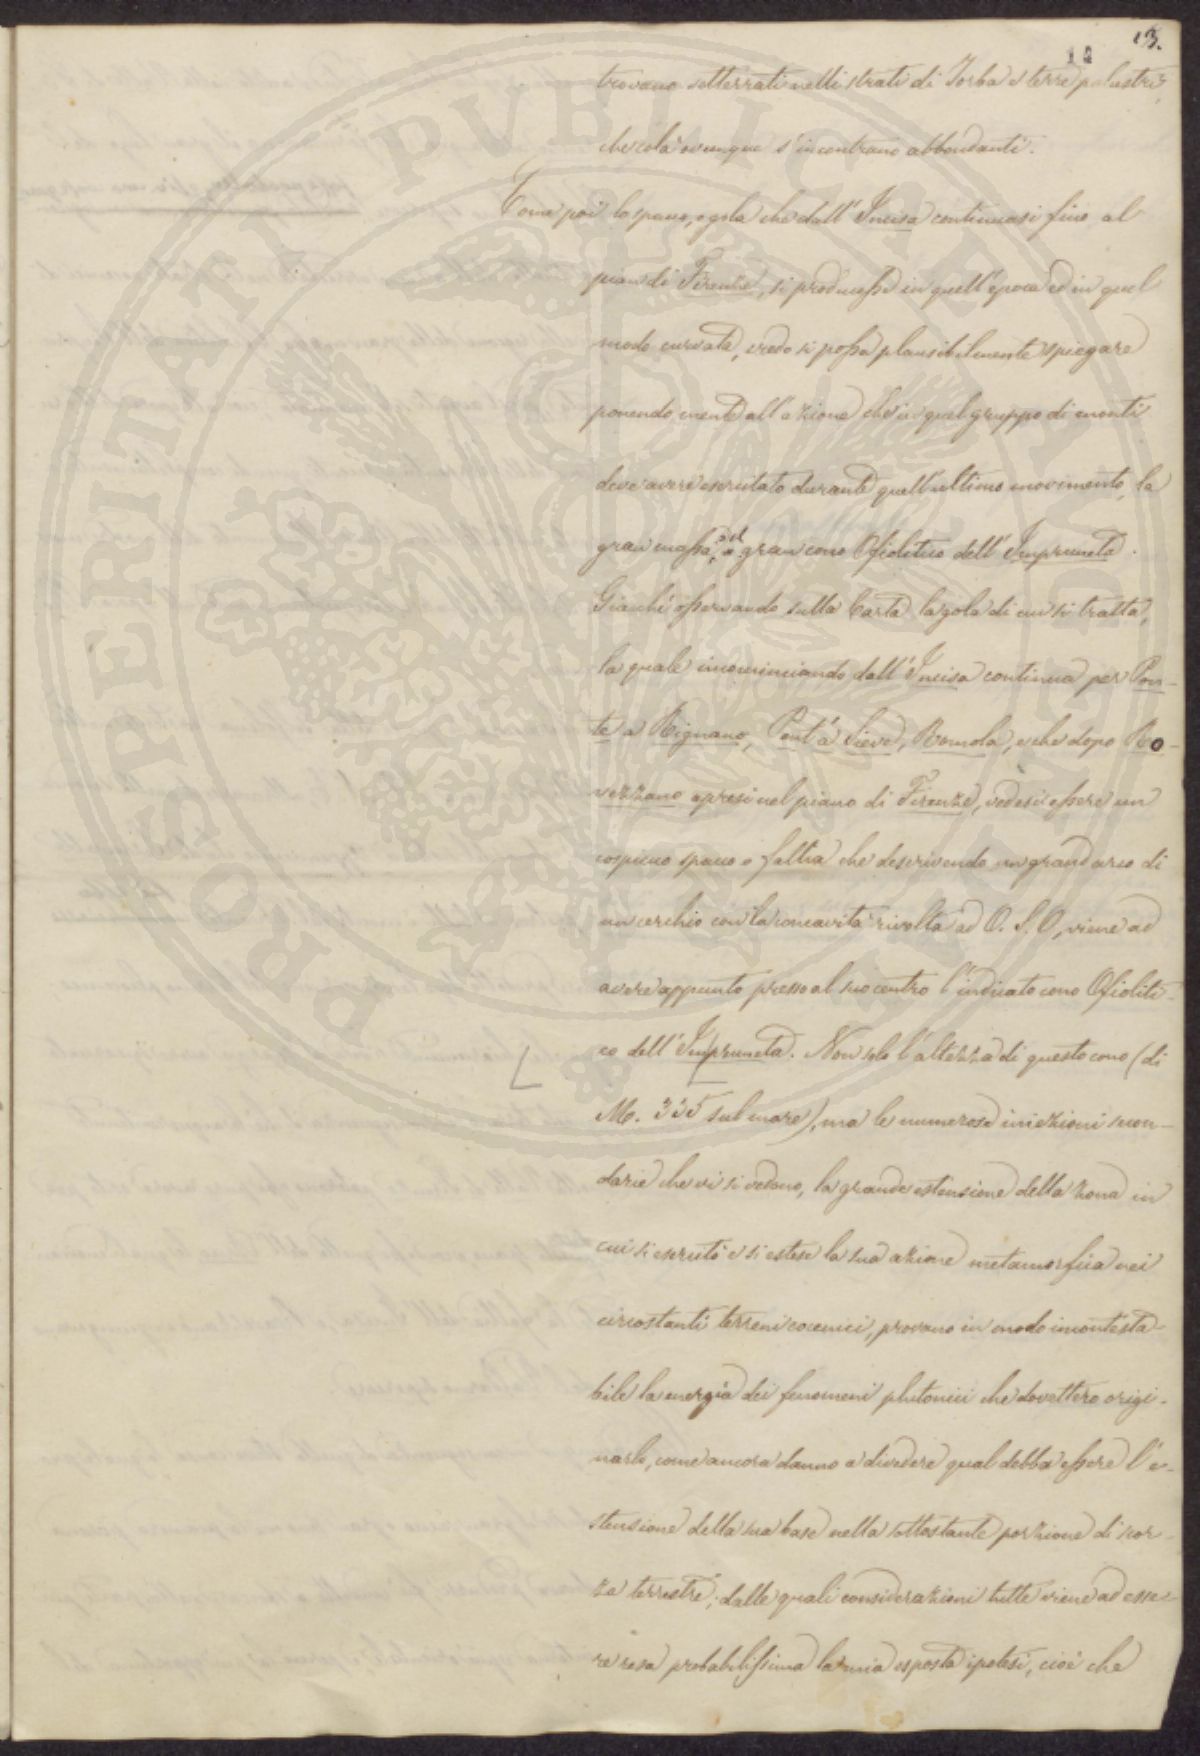 13.
12
trovano sotterrati nelli strati di Torba e terre palustri,
che colà ovunque s'incontrano abbondanti.
Come poi lo spacco, o gola che dall'Incisa continuasi fino al
pian di Firenze, si producesse in quell'epoca ed in quel
modo curvata, credo si possa plausibilmente spiegare
ponendo mente all'azione che in quel gruppo di monti
deve avere esercitato durante quell'ultimo movimento, la
gran massa, o il gran cono Ofiolitico dell'Impruneta.
Giacchè osservando sulla Carta la gola di cui si tratta,
la quale incominciando dall'Incisa continua per Pon-
te a Rignano, Pont'a Sieve, Remola, e che dopo Ro-
vezzano apresi nel piano di Firenze, vedesi essere un
cospicuo spacco o faltia che descrivendo un grand'arco di
un cerchio con la concavità rivolta ad O. S. O, viene ad
avere appunto presso al suo centro l'indicato cono Ofioliti-
co dell'Impruneta. Non solo l'altezza di questo cono (di
M. 335 sul mare), ma le numerose iniezioni secon-
darie che vi si vedono, la grande estensione della zona in
cui si esercitò e si estese la sua azione metamorfica nei
circostanti terreni eocenici, provano in modo incontesta-
bile la energia dei fenomeni plutonici che dovettero origi-
narlo, come ancora danno a divedere qual debba essere l'e-
stensione della sua base nella sottostante porzione di scor-
za terrestre; dalle quali considerazioni tutte viene ad esse-
re resa probabilissima la mia esposta ipotesi, cioè che
PROSPERITATI PUBLICAE